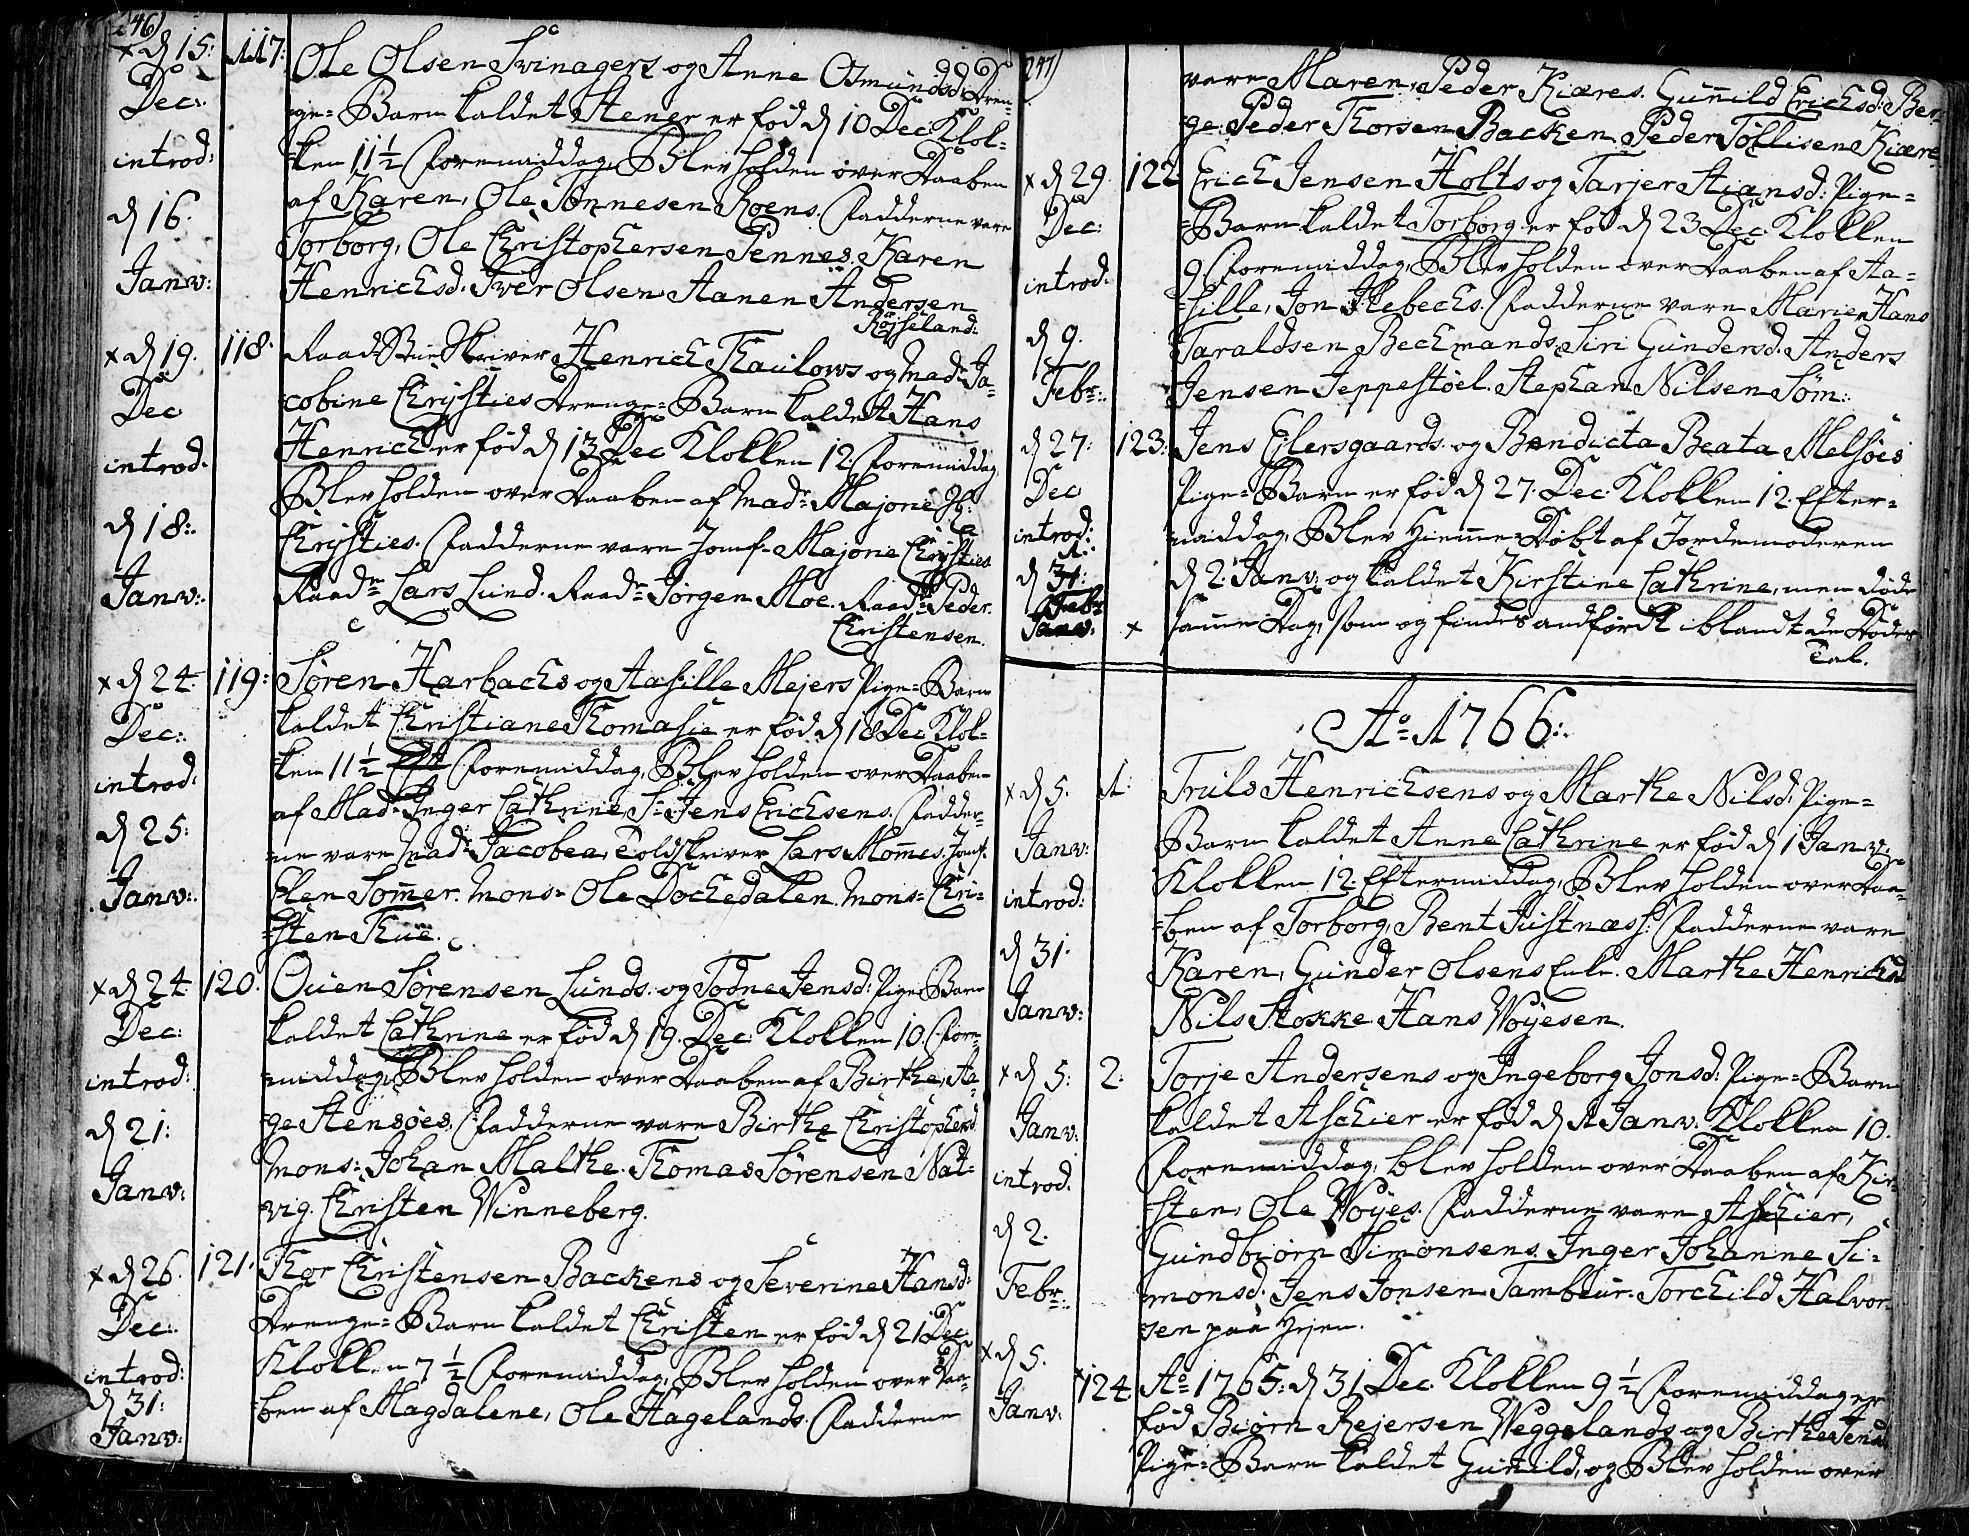 246)
× d 15: Dec: introd: d 16. Janv:
117: Ole Olsen Svinagers og Anne Osmundsd: Dren-
ge=Barn kaldet Stener er fød d 10 Dec: Klok-
ken 11½ Formiddag, Blev holden over Daaben
af Karen, Ole Tønnesen Roens. Fadderne vare
Torborg, Ole Christophersen Pennes. Karen
Henrichsd. Iver Olsen. Aanen Andersen
Røjseland:
× d 19. Dec introd. d 18: Janv:
118. Raadstue Skriver Henrich Thaulows og Mad: Ja-
cobine Christies Drenge=Barn kaldet Hans
Henrich er fød d 13 Dec Klokken 12. Formiddag,
Blev holden over Daaben af Madr Majorie
Christies. Fadderne vare Jomf. Majorie Christies
Raadm Lars Lund. Raadm Jørgen Moe. Raadm Peder
Christensen.
× d 24. Dec: introd: d 25: Janv:
119: Søren Harbachs og Aasille Mejers Pige=Barn
kaldet Christiane Thomasie er fød d 18 Dec: Klok-
ken 11½ Formiddag, Blev holden over Daaben
af Mad: Inger Cathrine, Sr Jens Erichsens. Fadder-
ne vare Mad: Jacobea, Toldskriver Lars Mommes. Jomf.
Elen Sommer. Mons= Ole Dochedalen. Mons= Chri-
sten Thue.
× d 24. Dec: introd: d 21: Janv:
120. Ouen Sørensen Lunds. og Todne Jensd: Pige=Barn
kaldet Cathrine er fød d 19. Dec: Klokken 10. For-
middag, Blev holden over Daaben af Birthe, Aa-
ge Stensøes. Fadderne vare Birthe Christophersd
Mons: Johan Malthe. Thomas Sørensen Nat-
vig. Christen Winneberg.
× d 26. Dec: introd: d 31: Janv:
121. Thor Christensen Backens og Severine Hansd:
Drenge=Barn kaldet Christen er fød d 21 Dec:
Klokken 7½ Formiddag, Blev holden over Daa-
ben af Magdalene, Ole Hagelands. Fadderne
247)
vare Maren, Peder Kiæres. Gunnild Erichsd: Ber-
ge. Peder Thorsen Backen. Peder Tøllisen Kiære
× d 29. Dec: introd. d 9. Febr:
122 Erich Jensen Holts og Tarjer Stiansd: Pige=
=Barn kaldet Torborg er fød d 23 Dec: Klokken
9. Formiddag, Blev holden over Daaben af Aa-
sille, Jon Flebechs. Fadderne vare Marie, Hans
Taraldsen Bechmands. Siri Gundersd. Anders
Jensen Jeppestøel. Stephan Nilsen Søm:
d 27: Dec introd: d 1. Febr
123: Jens Eilersgaards og Bendicta Beata Melsøes
Pige=Barn er fød d 27. Dec: Klokken 12. Efter-
middag, Blev Hiemme Døbt af Jordemoderen
d 2. Janv: og kaldet Kirstine Cathrine, men døde
× samme Dag, som og findes andført iblandt de Døde
Tal.
Ao 1766:
× d 5. Janv: introd: d 31: Janv:
1: Truls Henrichsens og Marthe Nilsd: Pige=
Barn kaldet Anne Cathrine er fød d 1 Janv:
Klokken 12 Eftermiddag, Blev holden over Daa-
ben af Torborg, Bent Justnæs: Fadderne vare
Karen, Gunder Olsens Enke. Marthe Henrichsd
Nils Stokke. Hans Woyesen.
× d 5: Janv: introd. d 2. Febr:
2. Torje Andersens og Ingeborg Jonsd: Pige=Barn
kaldet Aschier er fød d 1 Janv: Klokken 10.
Formiddag, blev holden over Daaben af Kir-
sten, Ole Woyes. Fadderne vare Aschier,
Gundbiørn Simonsens. Inger Johanne Si-
monsd. Jens Jonsen Tambour. Torchild Halvor-
sen paa Hejen.
× d 5. Janv:
124 Ao 1765: d 31 Dec: Klokken 9½ Formiddag er
fød Biørn Rejersen Weggelands og Birthe Jensd
Pige=Barn kaldet Gunild, og Blev holden over